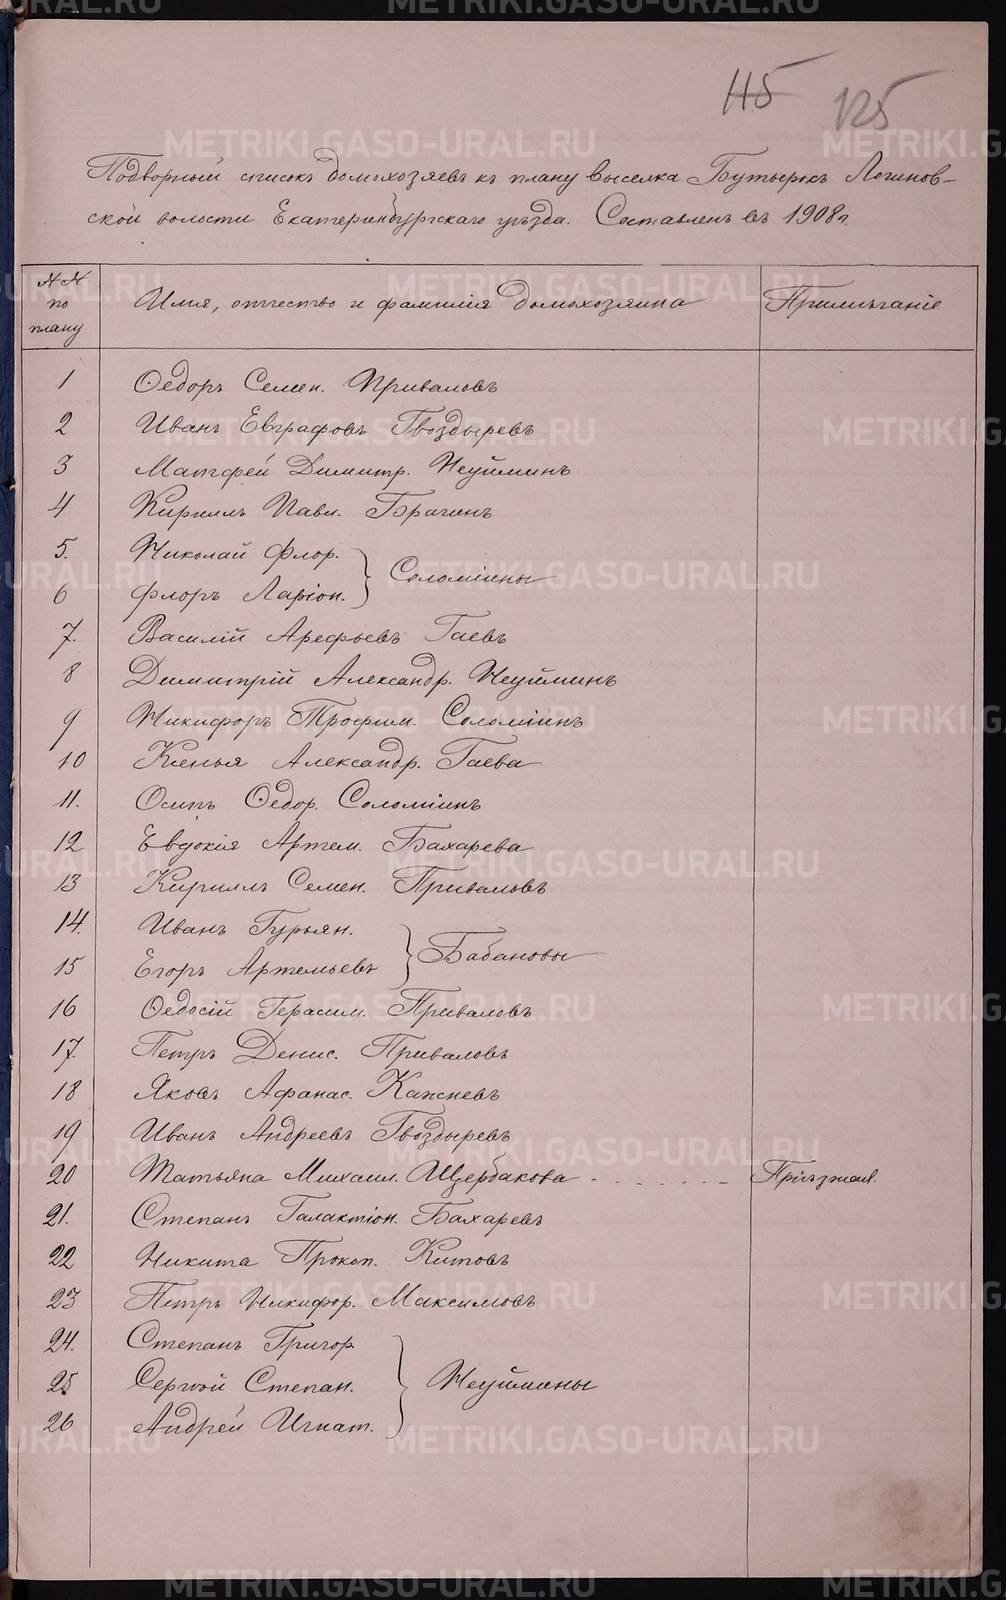 115 125
Подворный списокъ домохозяевъ къ плану выселка Бутырокъ Логинов-
ской волости Екатеринбургскаго уѣзда. Составленъ въ 1908 г.
№№ по плану Имя, отчество и фамилія домохозяина Примѣчаніе
1 Ѳедоръ Семен. Приваловъ
2 Иванъ Евграфовъ Гвоздыревъ
3 Матфей Димитр. Неуйминъ
4 Кириллъ Павл. Брагинъ
5. Николай Флор.
6 Флоръ Ларіон. } Соломіины
7. Василій Арефьевъ Гаевъ
8 Димитрій Александр. Неуйминъ
9 Никифоръ Трофим. Соломіинъ
10 Ксенья Александр. Гаева
11. Осипъ Ѳедор. Соломіинъ
12 Евдокія Артем. Бахарева
13 Кириллъ Семен. Приваловъ
14. Иванъ Гурьян.
15 Егоръ Артемьевъ } Бабановы
16 Ѳедосій Герасим. Приваловъ
17. Петръ Денис. Приваловъ
18 Яковъ Афанас. Кажневъ
19 Иванъ Андреевъ Гвоздыревъ
20 Татьяна Михаил. Щербакова . . . . . . . Пріѣзжая.
21. Степанъ Галактіон. Бахаревъ
22 Никита Прокоп. Китовъ
23 Петръ Никифор. Максимовъ
24. Степанъ Григор.
25 Сергѣй Степан. } Неуймины
26 Андрей Игнат.
METRIKI.GASO-URAL.RU